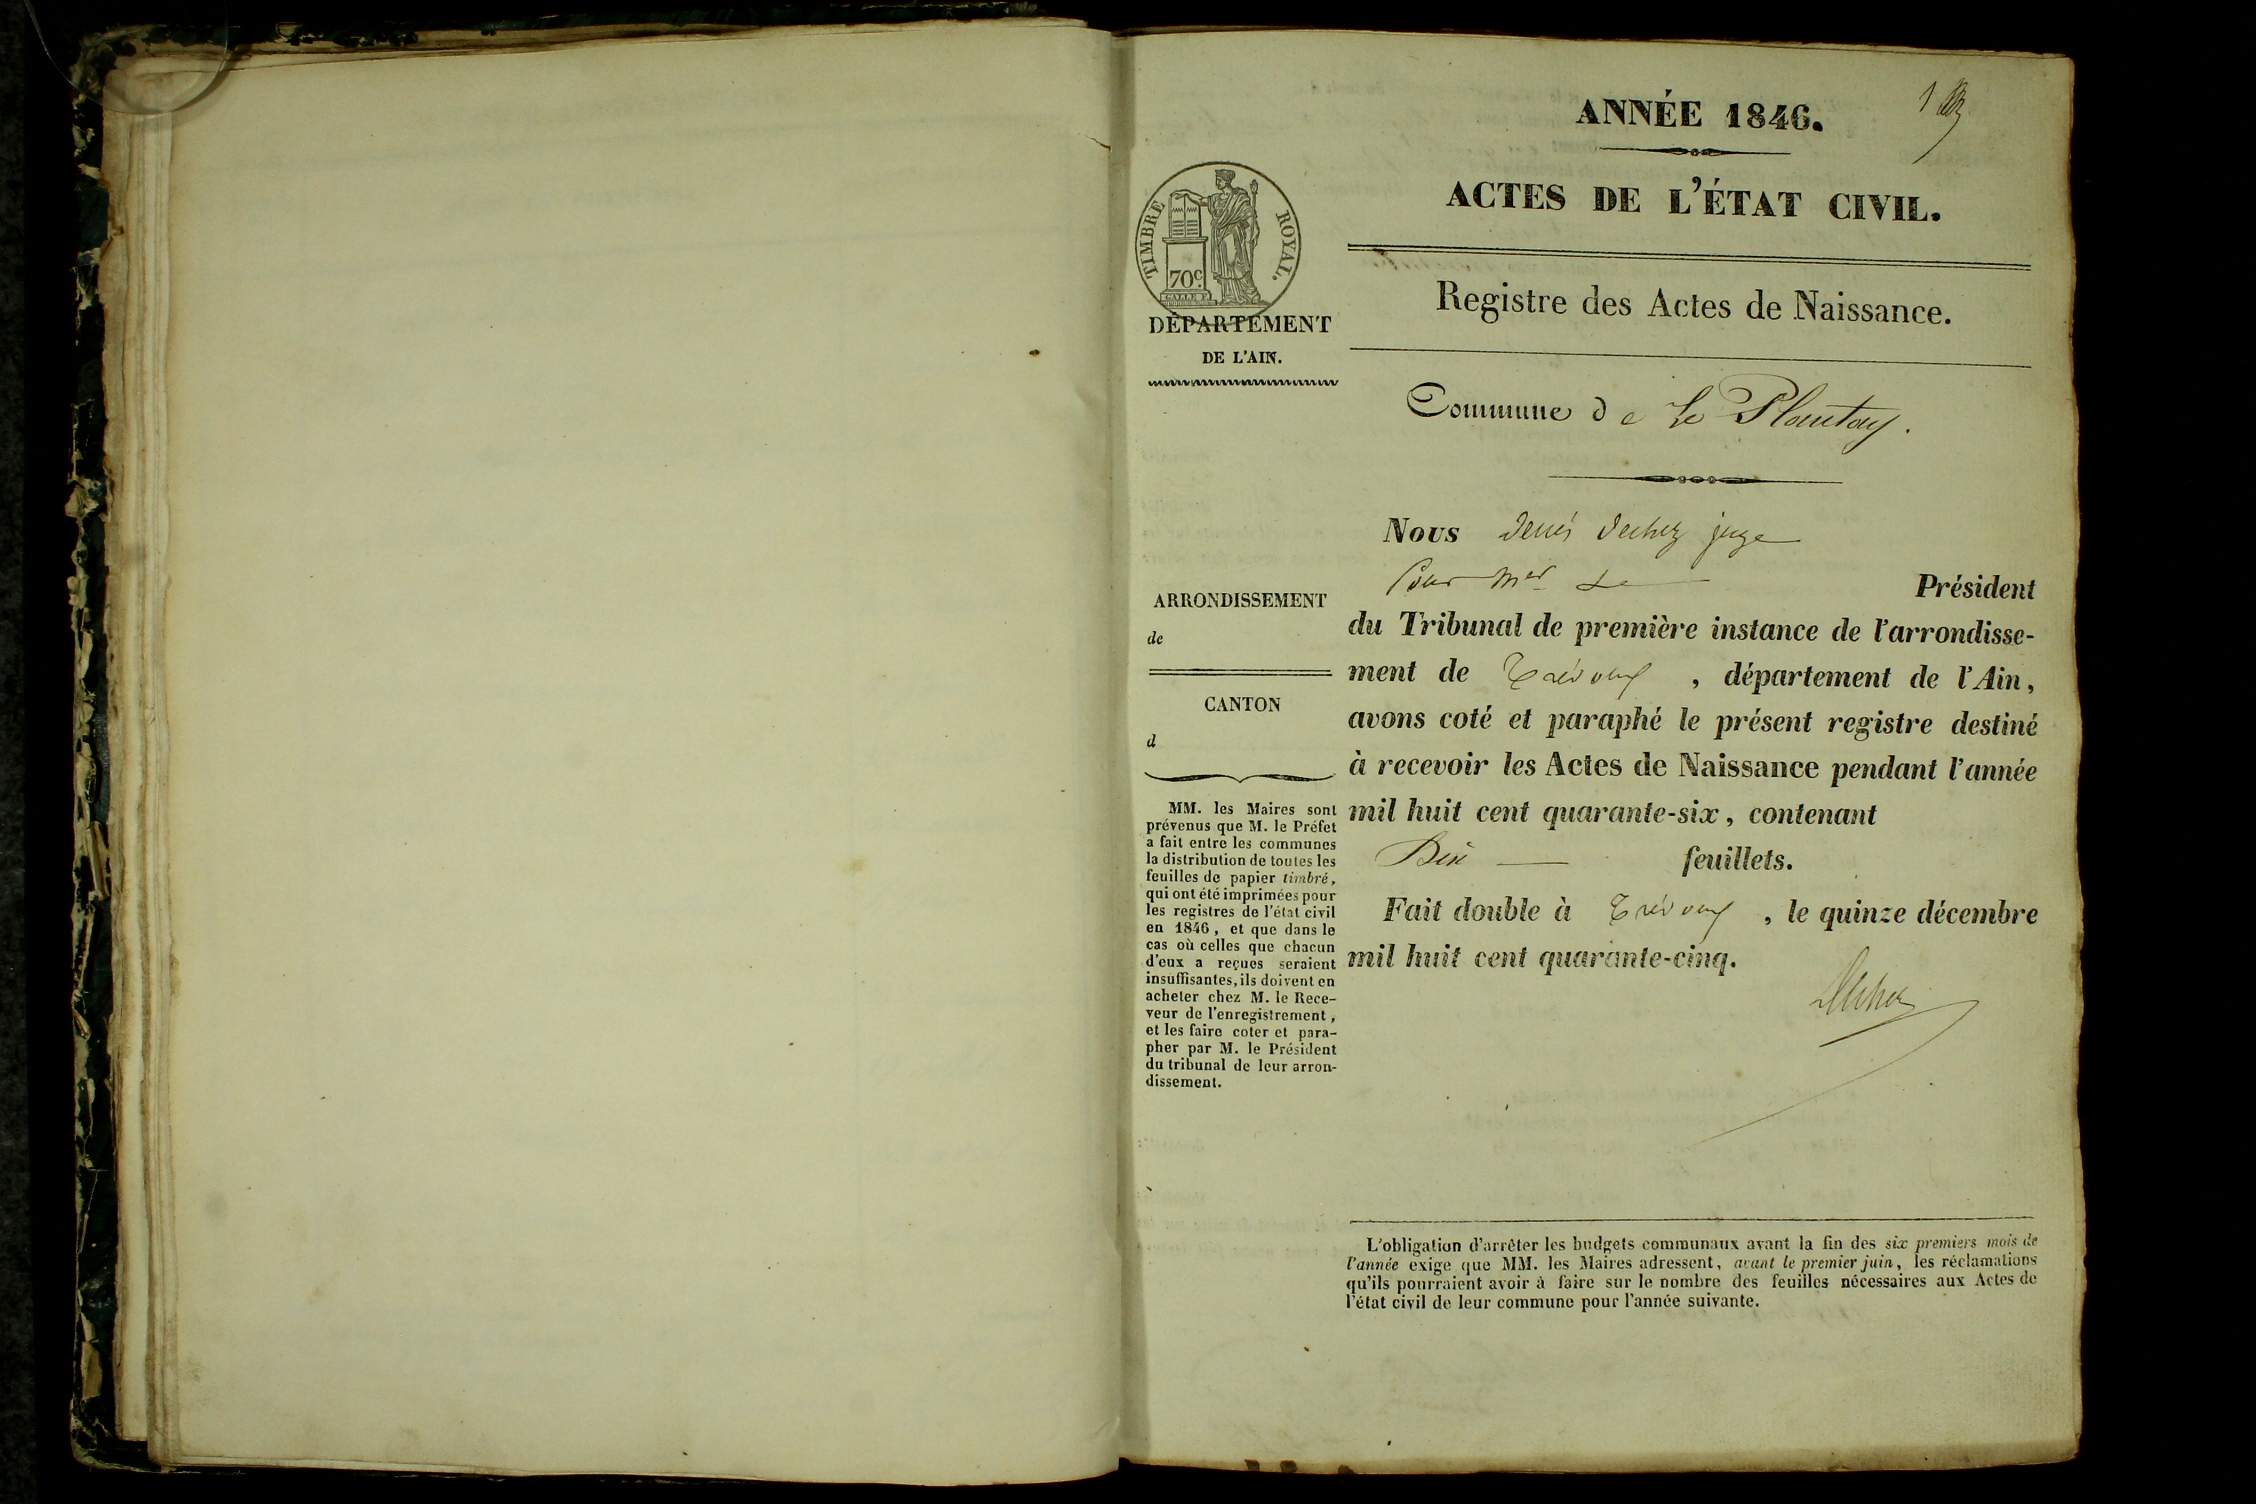 ANNÉE 1846.
1
ACTES DE L'ÉTAT CIVIL.
TIMBRE ROYAL.
70c.
DÉPARTEMENT
DE L'AIN.
Registre des Actes de Naissance.
Commune de Le Plantay.
Nous denis dechez juge
Pour Mr Le Président
du Tribunal de première instance de l'arrondisse-
ment de Trévoux, département de l'Ain,
avons coté et paraphé le présent registre destiné
à recevoir les Actes de Naissance pendant l'année
mil huit cent quarante-six, contenant
feuillets.
Fait double à Trévoux, le quinze décembre
mil huit cent quarante-cinq.
ARRONDISSEMENT
de
CANTON
d
MM. les Maires sont
prévenus que M. le Préfet
a fait entre les communes
la distribution de toutes les
feuilles de papier timbré,
qui ont été imprimées pour
les registres de l'état civil
en 1846, et que dans le
cas où celles que chacun
d'eux a reçues seraient
insuffisantes, ils doivent en
acheter chez M. le Rece-
veur de l'enregistrement,
et les faire coter et para-
pher par M. le Président
du tribunal de leur arron-
dissement.
L'obligation d'arrêter les budgets communaux avant la fin des six premiers mois de
l'année exige que MM. les Maires adressent, avant le premier juin, les réclamations
qu'ils pourraient avoir à faire sur le nombre des feuilles nécessaires aux Actes de
l'état civil de leur commune pour l'année suivante.